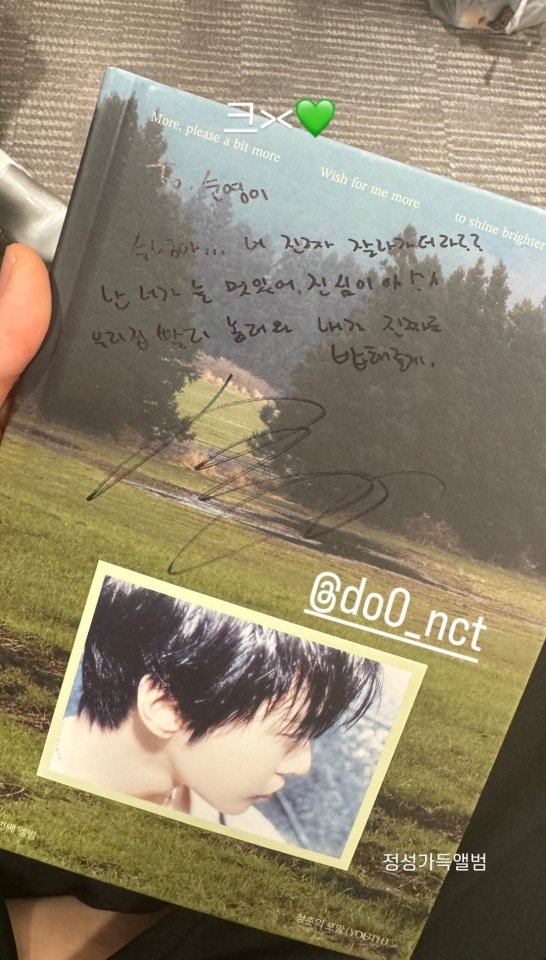 크ㅅ💚
More, please a bit more
Wish for me more
to shine brighter
To. 순영이
순영아... 너 진짜 잘나가더라ㄹㄹ
난 너가 늘 멋있어. 진심이야!^
우리집 빨리 놀러와 내가 진짜로
밥해줄게.
@do0_nct
정성가득앨범
번째 앨범
청춘의 포말 (YOUTH)